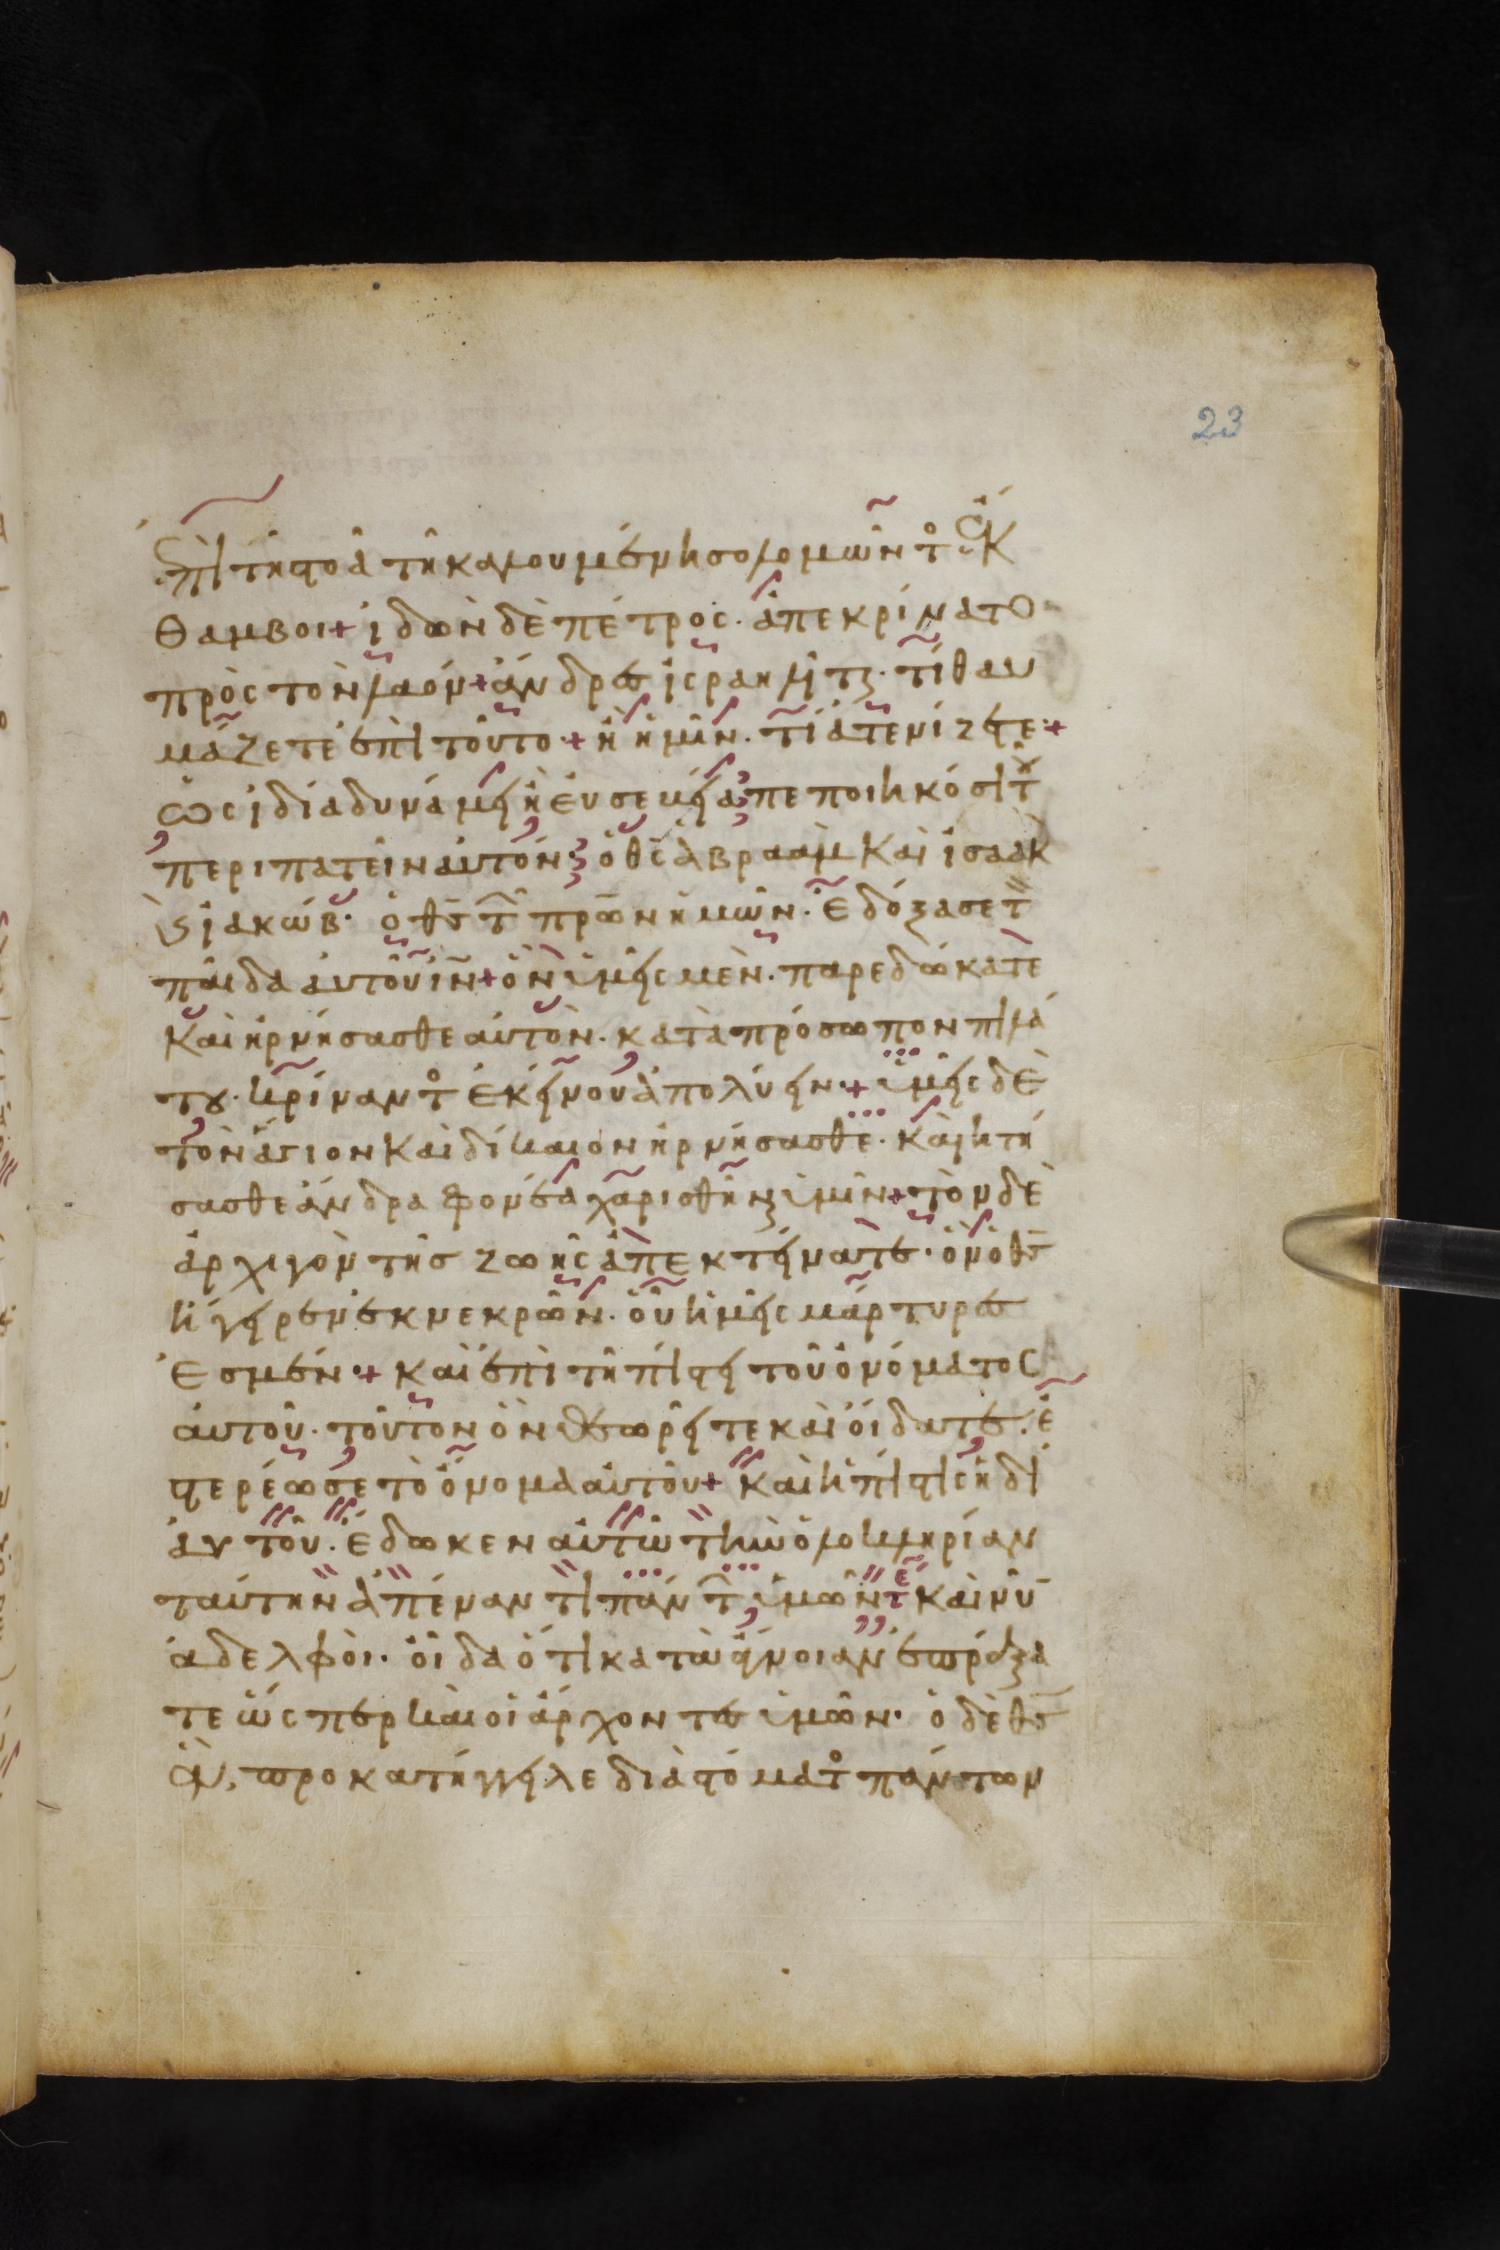 23
ἐπὶ τῆ στοᾶ τῆ καλουμένη σολομῶντο ἔκ
θαμβοι + ἰδὼν δὲ πέτρος · ἀπεκρίνατο
πρὸς τὸν λαόν + ἄνδρες ἰσραηλίται · τί θαυ
μάζετε ἐπὶ τούτο · + ἢ ἡμῖν · τί ἀτενίζετε · +
ὡς ἰδία δυνάμει ἢ ἐυσεβεία πεποιηκόσι τοῦ
περιπατεῖν αυτόν · ὁ θς ἀβραὰμ καὶ ἰσαὰκ
καὶ ἰακώβ · ὁ θς τῶν πρων ἡμῶν · ἐδόξασε τὸν
παῖδα ἀυτοῦ ιν + ὃν ὑμεῖς μὲν · παρεδώκατὲ
καὶ ἠρνήσασθε αὐτὸν · κατὰ πρόσωπον πιλά
του · κρίναντο ἐκείνου ἀπολύειν · + ὑμεῖς δὲ
τὸν ἅγιον καὶ δίκαιον ἠρνήσασθε · καὶ ητή
σασθε ἄνδρα φονέα χαρισθῆναι ὑμῖν + τὸν δὲ
ἀρχιγὸν τῆσ ζωῆς ἀπεκτείνατε · ὃν ὁ θς
ἤγειρεν ἐκ νεκρῶν · οὗ ἡμεῖς μάρτυρες
ἐσμέν · + καὶ ἐπὶ τῆ πίστει τοῦ ὀνόματος
αυτοῦ · τοῦτον ὃν θεωρεῖτε καὶ οἴδατε · ἐ
στερέωσε τὸ ὄνομα αὐτοῦ + καὶ ἡ πίστις ἡ δι
ἀυτοῦ · ἔδωκεν αὐτῶ τὴν ὁλοκληρίαν
ταύτην ἀπέναντι πάντων ὑμῶν τε καὶ νῦ
ἀδελφοὶ · οἶδα ὅτι κατὰ ἄγνοιαν ἐπράξα
τε ὥσπερ καὶ οἱ ἄρχοντες ὑμῶν · ὁ δὲ θς
ἃ προκατήγγειλε διὰ στόματο πάντων